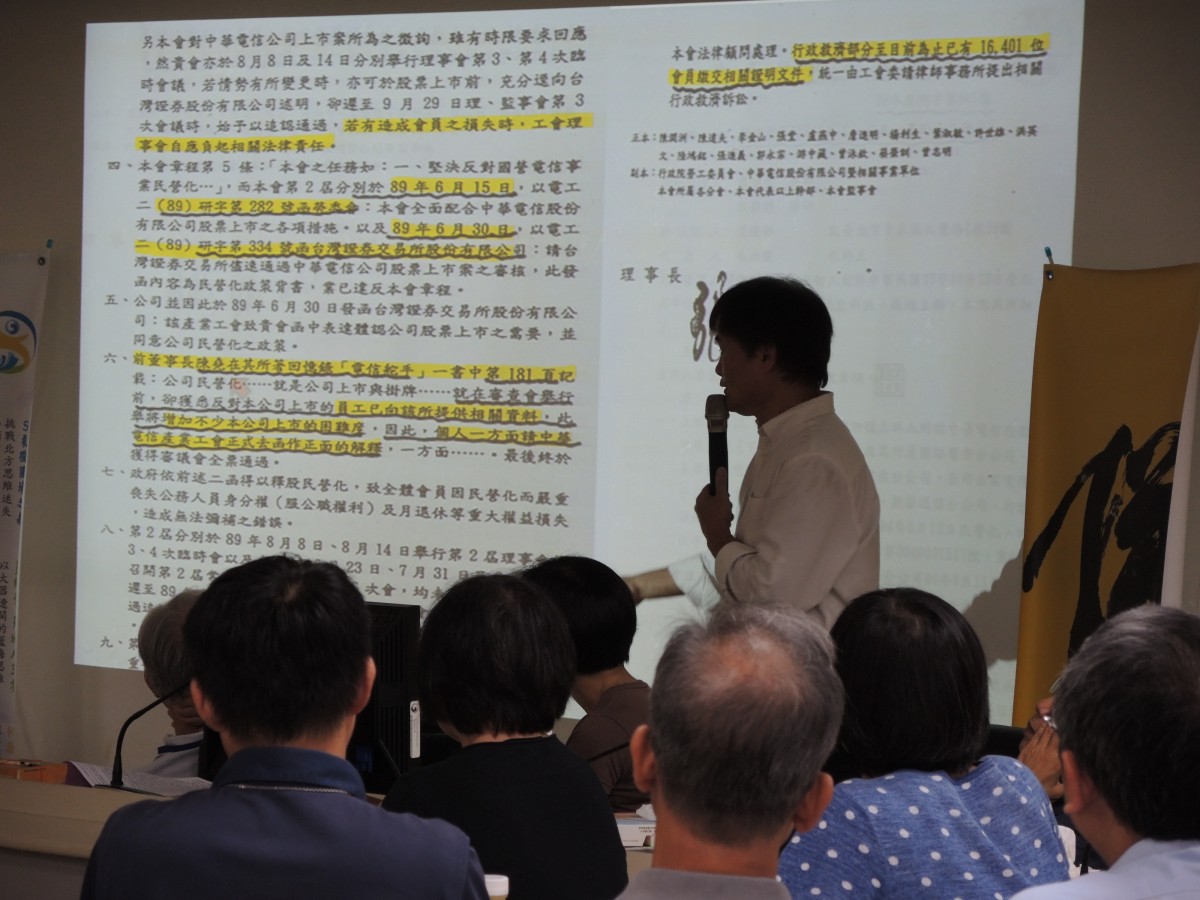 另本會對中華電信公司上市案所為之徵詢，雖有時限要求回應
，然貴會亦於8月8日及14日分別舉行理事會第3、第4次臨
時會議，若情勢有所變更時，亦可於股票上市前，充分逕向台
灣證券股份有限公司述明，卻遲至9月29日理、監事會第3
次會議時，始予以追認通過，若有造成會員之損失時，工會理
事會自應負起相關法律責任。
四、本會章程第5條：「本會之任務如：一、堅決反對國營電信事
業民營化…」，而本會第2屆分別於89年6月15日，以電工
二（89）研字第282號函勞委會：本會全面配合中華電信股份
有限公司股票上市之各項措施。以及89年6月30日，以電工
二（89）研字第334號函台灣證券交易所股份有限公司：請台
灣證券交易所儘速通過中華電信公司股票上市案之審核，此發
函內容為民營化政策背書，業已違反本會章程。
五、公司並因此於89年6月30日發函台灣證券交易所股份有限公
司：該產業工會致貴會函中表達體認公司股票上市之需要，並
同意公司民營化之政策。
六、前董事長陳堯在其所著回憶錄「電信舵手」一書中第181頁記
載：公司民營化……就是公司上市與掛牌……就在審查會舉行
前，卻獲悉反對本公司上市的員工已向該所提供相關資料，此
舉將增加不少本公司上市的困難度，因此，個人一方面請中華
電信產業工會正式去函作正面的解釋，一方面……。最後終於
獲得審議會全票通過。
七、政府依前述二函得以釋股民營化，致全體會員因民營化而嚴重
喪失公務人員身分權（服公職權利）及月退休等重大權益損失
，造成無法彌補之錯誤。
八、第2屆分別於89年8月8日、8月14日舉行第2屆理事會
3、4次臨時會以及 23日、7月31日
召開第2屆 次會，均未
遲至89
過
九、第
重
本會法律顧問處理。行政救濟部分至目前為止已有16,401位
會員繳交相關證明文件，統一由工會委請律師事務所提出相關
行政救濟訴訟。
正本：陳潤洲、陳達夫、李金山、張堂、盧燕中、詹進明、楊利生、葉淑敏、許世雄、洪英
文、陸鴻銘、張進義、郭永富、游中藏、曾泳欽、蔡榮訓、曾志明
副本：行政院勞工委員會、中華電信股份有限公司暨相關事業單位
本會所屬各分會、本會代表以上幹部、本會監事會
理事長
張
挑戰北方思維迷失